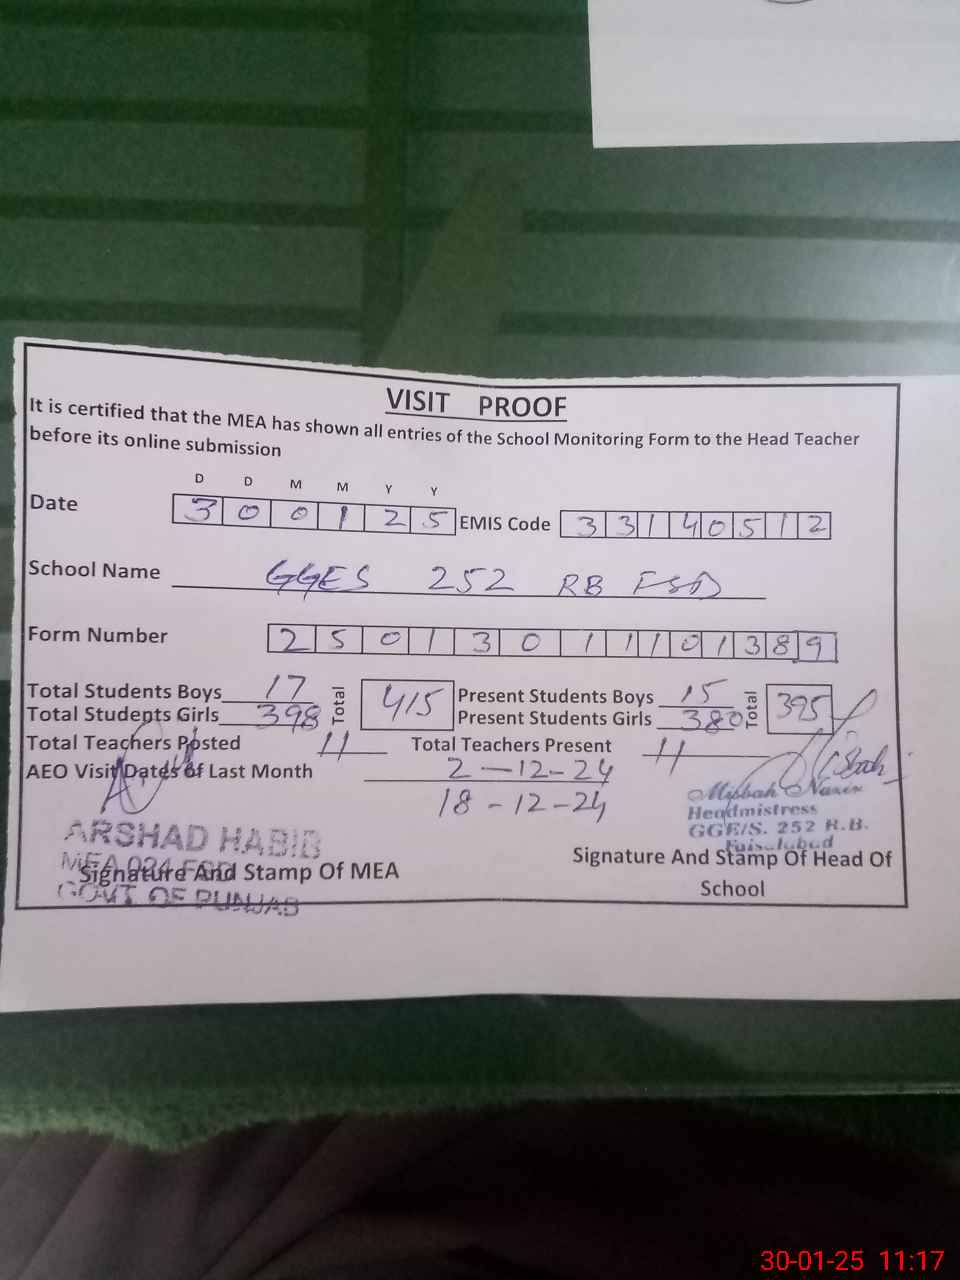 VISIT PROOF
It is certified that the MEA has shown all entries of the School Monitoring Form to the Head Teacher
before its online submission
D D M M Y Y
Date 3 0 0 1 2 5 EMIS Code 3 3 1 4 0 5 1 2
School Name GGES 252 RB FSD
Form Number 2 5 0 1 3 0 1 1 1 0 1 3 8 9
Total Students Boys 17 Total 415 Present Students Boys 15 Total 395
Total Students Girls 398 Present Students Girls 380
Total Teachers Posted 11 Total Teachers Present 11
AEO Visit Dates of Last Month 2-12-24
18-12-24
Misbah Nazir
Headmistress
GGE/S. 252 R.B.
Faisalabad
ARSHAD HABIB
MEA 024 FSD
GOVT OF PUNJAB
Signature And Stamp Of MEA
Signature And Stamp Of Head Of
School
30-01-25 11:17